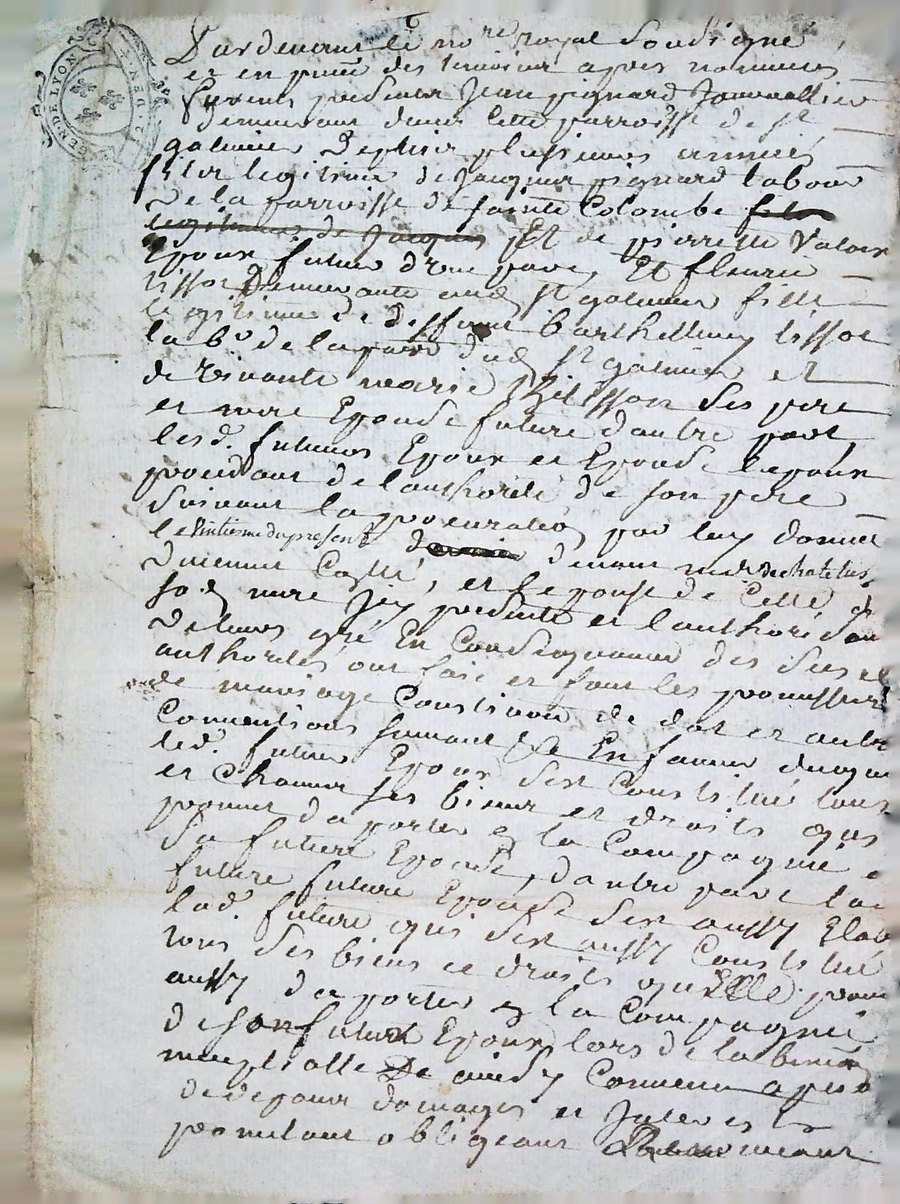 GEN. DE LYON
2. DEN.
Pardevant le no re royal Soussigné
et en pnce des temoins apres nommés
furent presens Jean pignard Journallier
demeurant dans cette parroisse de st
galmier depuis plusieurs années
fils legitime de Jacques pignard labour
de la parroisse de sainte Colombe fils
legitimes de Jacques Et de pierrette Valois
Epoux futur d'une part, Et fleurie
tissot Demeurante aud st galmier fille
legitime de deffunt Barthellemy tissot
lab r de la par dud st galmier et
de vivante marie ses pere
et mere Epouse future d'autre part
lesd. futurs Epoux et Epouse lepoux
procedant de l'authorité de son pere
suivant la procuration par luy donnée
le Vintieme du present devant me Duchatelus
et lepouse de Celle de
sad mere Icy presente et l'authorisant
De leurs gré En Consequence des
authorités ont fait et font les promesses
de mariage Constitution de dot et autre
Conventions suivant En faveur duquel
led. futur Epoux s'est Constitué tous
et Chacun ses biens et droits qu'il
promet d'aporter a la Compagnie de
sa future Epouse, d'autre part lad
future future Epouse s'est aussy
lad. future qui s'est aussy Constitué
tous ses biens et droits qu'Elle promet
aussy d'aporter a la Compagnie
de son futur Epoux lors de la
nuptialle De ainsy Convenu a peine
de depans domages et Interests
promettant obligeant Renonceant